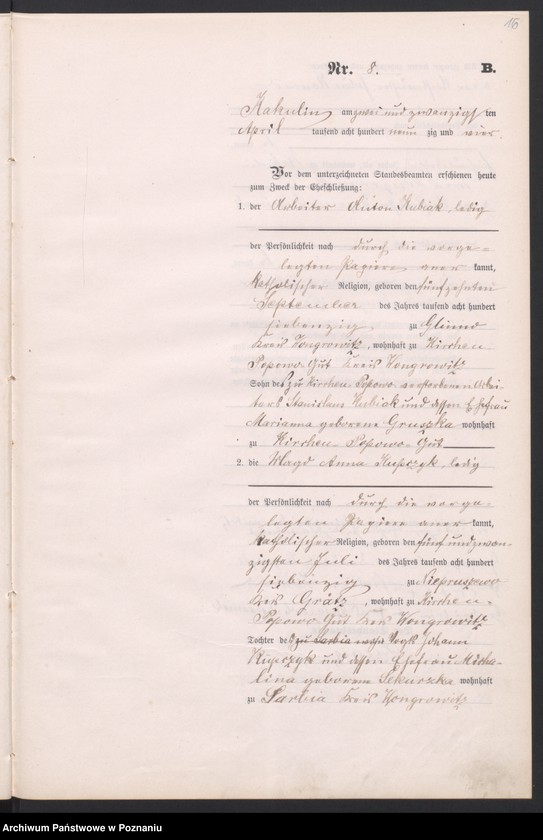 16
Nr. 8. B.
Kakulin, am zwei und zwanzigsten
April tausend acht hundert neun zig und vier.
Vor dem unterzeichneten Standesbeamten erschienen heute
zum Zweck der Eheschließung:
1. der Arbeiter Anton Kubiak, ledig
der Persönlichkeit nach durch die vorge-
legten Papiere aner kannt,
katholischer Religion, geboren den fünfzehnten
September des Jahres tausend acht hundert
siebenzig zu Glinno
Kreis Wongrowitz, wohnhaft zu Kirchen-
Popowo-Gut Kreis Wongrowitz
Sohn des zu Kirchen-Popowo verstorbenen Arbei-
ters Stanislaus Kubiak und dessen Ehefrau
Marianna geborene Gruszka wohnhaft
zu Kirchen-Popowo-Gut
2. die Magd Anna Kupczyk, ledig
der Persönlichkeit nach durch die vorge-
legten Papiere aner kannt,
katholischer Religion, geboren den fünf und zwan-
zigsten Juli des Jahres tausend acht hundert
siebenzig zu Niepruszewo
Kreis Grätz, wohnhaft zu Kirchen-
Popowo Gut Kreis Wongrowitz
Tochter des zu Sarbia Johann
Kupczyk und dessen Ehefrau Micha-
lina geborene wohnhaft
zu Sarbia Kreis Wongrowitz
Archiwum Państwowe w Poznaniu